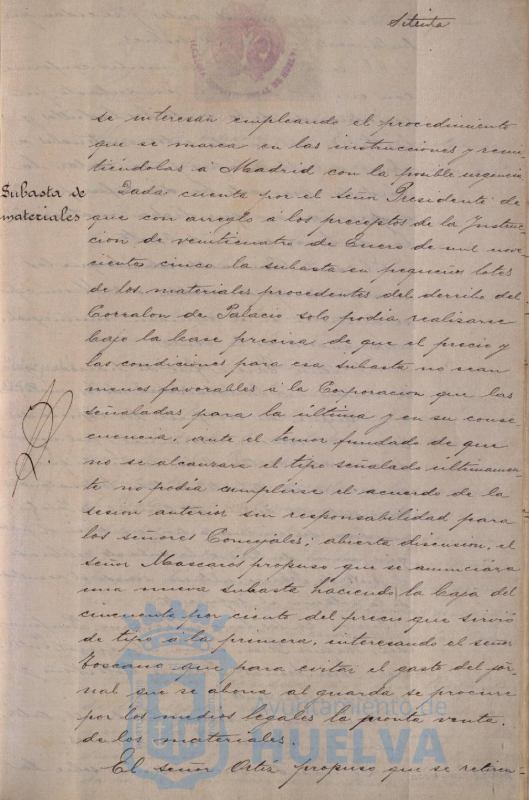 Setenta
se interesan empleando el procedimiento
que se marca en las instrucciones y remi-
tiéndolas á Madrid con la posible urgencia
Subasta de
materiales
Dada cuenta por el señor Presidente de
que con arreglo á los preceptos de la Instruc-
cion de veinticuatro de Enero de mil nove-
cientos cinco la subasta en pequeños lotes
de los materiales procedentes del derribo del
Corralon de Palacio solo podia realizarse
bajo la base precisa de que el precio y
las condiciones para esa subasta no sean
menos favorables á la Corporacion que las
señaladas para la última y en su conse-
cuencia, ante el temor fundado de que
no se alcanzare el tipo señalado últimamen-
te no podia cumplirse el acuerdo de la
sesion anterior sin responsabilidad para
los señores Concejales; abierta discusion, el
señor Mascarós propuso que se anunciára
una nueva subasta haciendo la baja del
cincuenta por ciento del precio que sirvió
de tipo á la primera, interesando el señor
Toscano que para evitar el gasto del jor-
nal que se abona al guarda se procure
por los medios legales la pronta venta
de los materiales.
El señor Ortiz propuso que se retiren
Ayuntamiento de
HUELVA